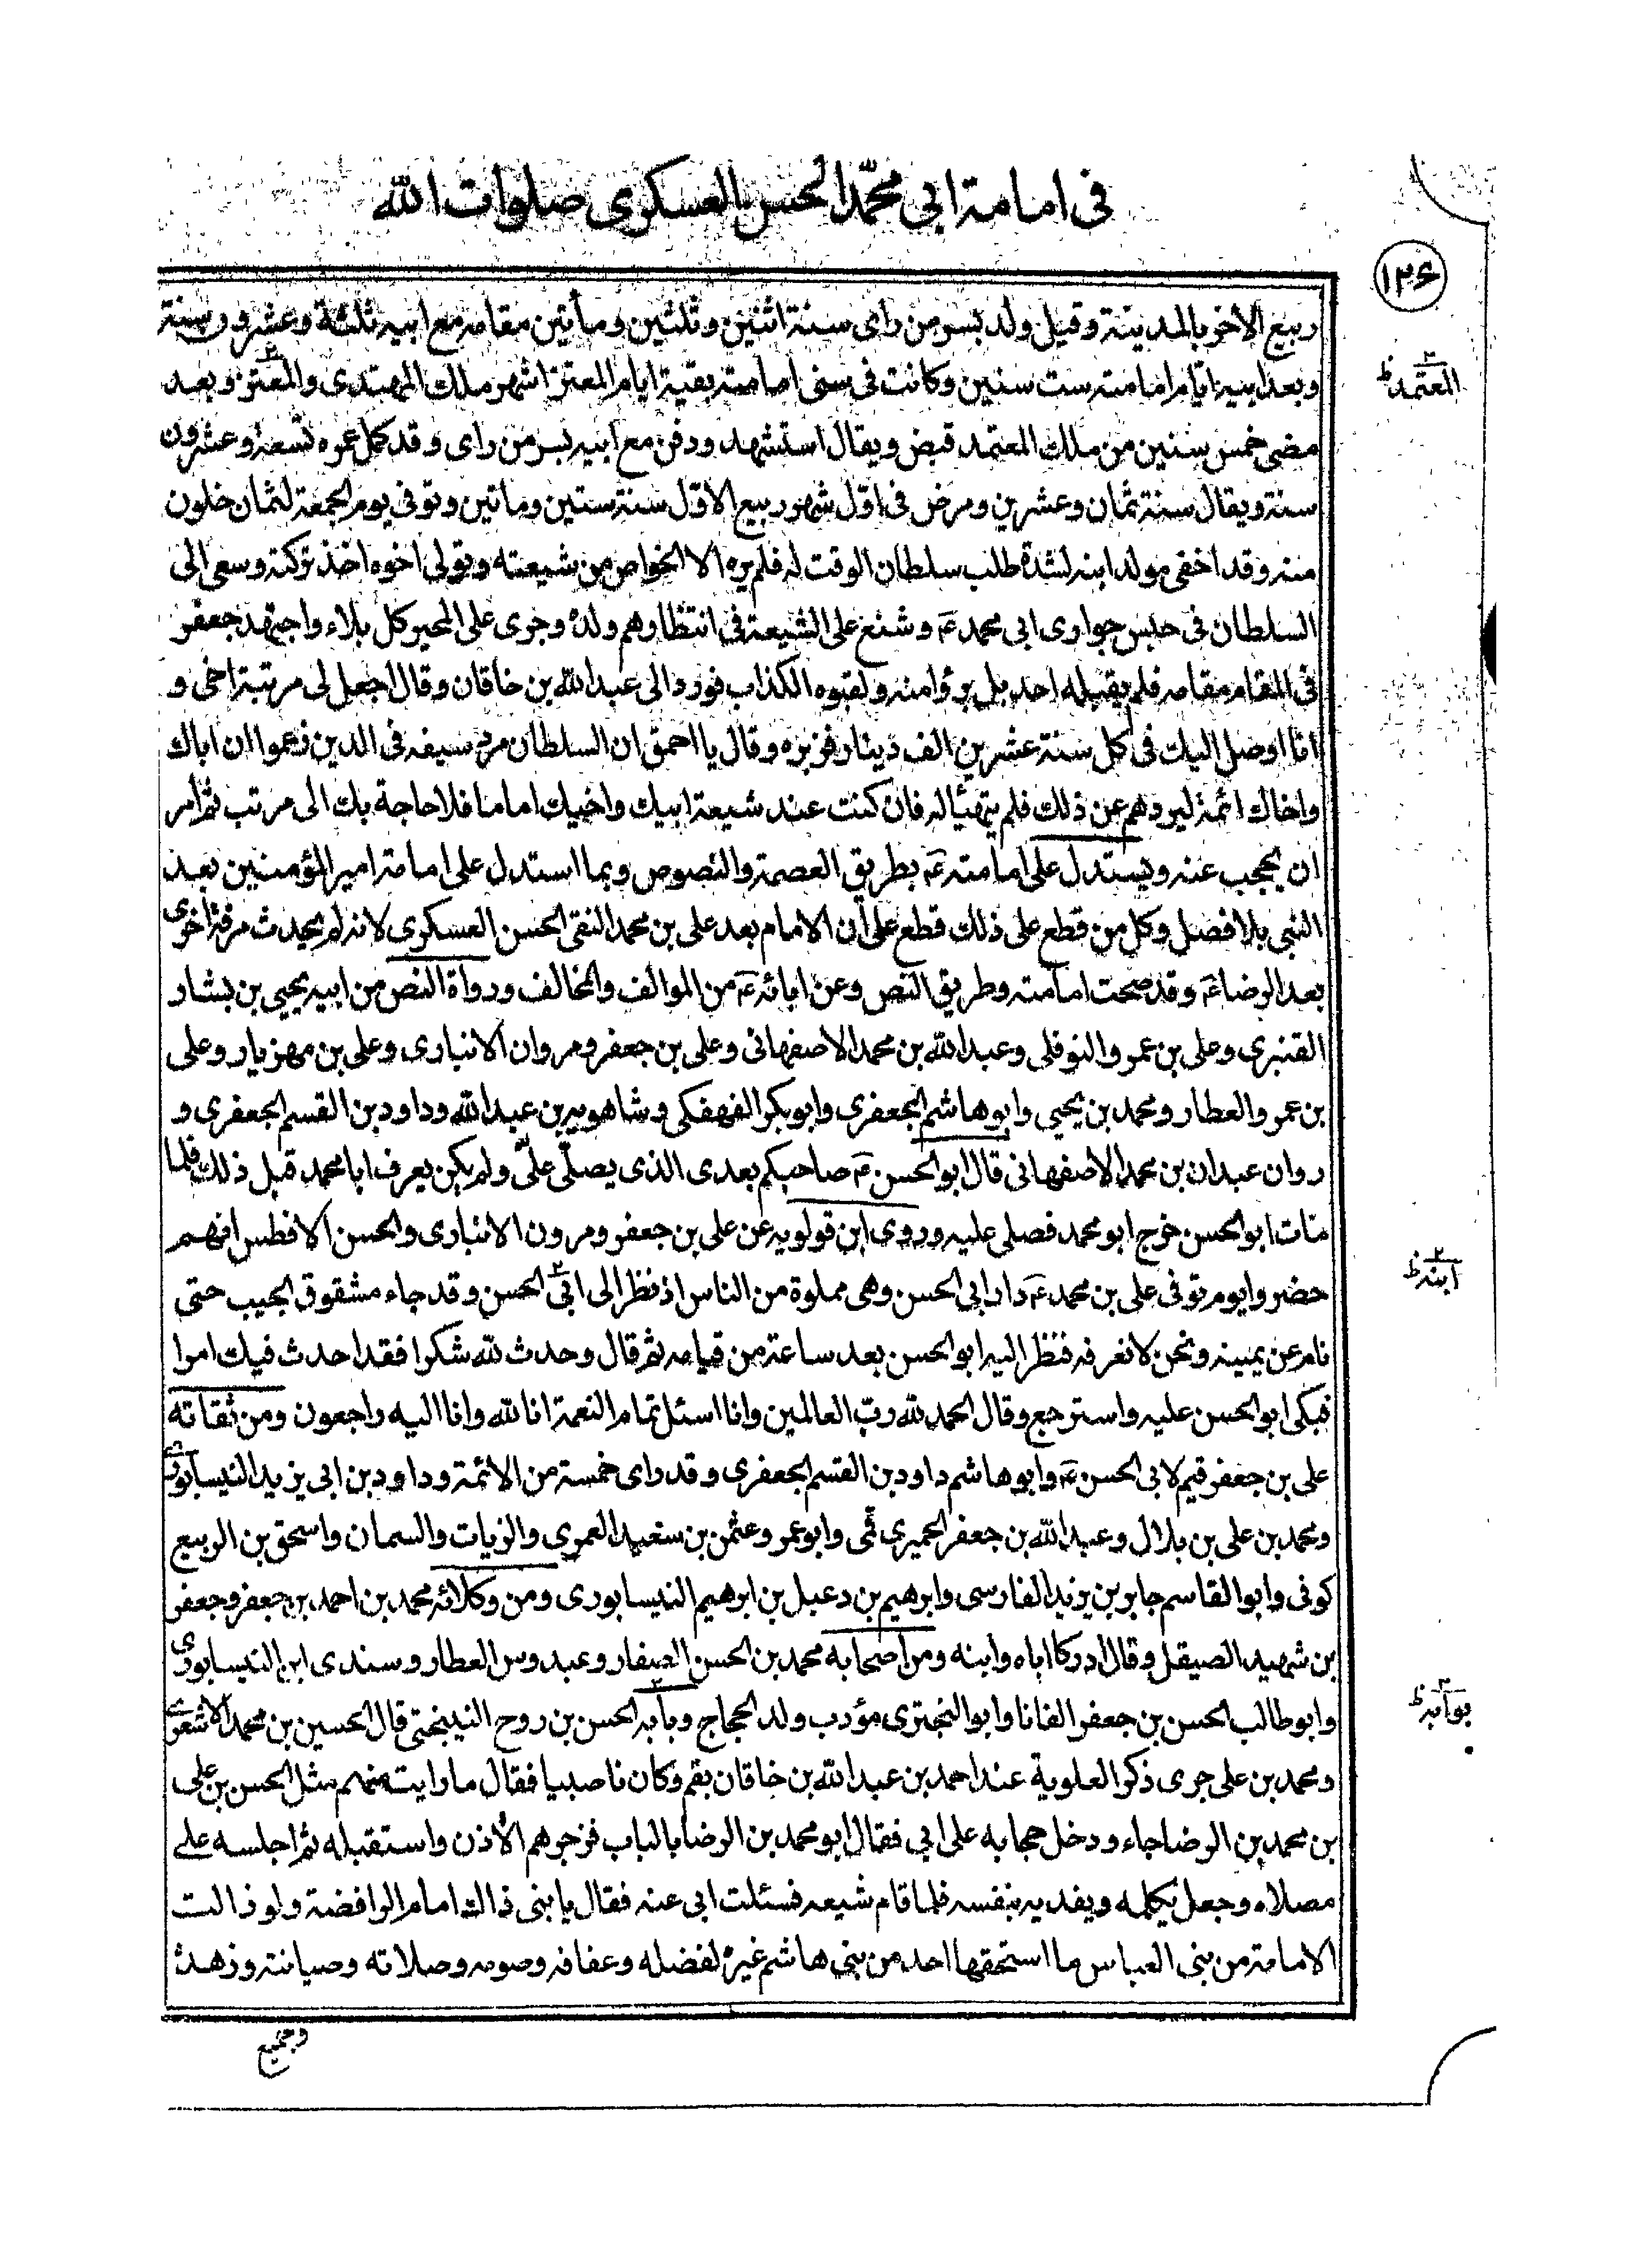 فى امامة ابى محمّد الحسن العسكرى صلوات الله
١٢۶
ربيع الاخر بالمدينة وقيل ولد بسر من راى سنة اثنين وثلثين ومأتين مقامه مع ابيه ثلثة وعشرون سنة
وبعد ابيه ايام امامته ست سنين وكانت فى سنى امامته بقية ايام المعتز اشهر ملك المهتدى والمعتز وبعد
المعتمد ظ
مضى خمس سنين من ملك المعتمد قبض ويقال استشهد ودفن مع ابيه بسر من راى وقد كمل عمره تسعة وعشرون
سنة ويقال سنة ثمان وعشرين ومرض فى اوّل شهر ربيع الاوّل سنة ستين وماتين وتوفى يوم الجمعة لثمان خلون
منه وقد اخفى مولد ابنه لشدة طلب سلطان الوقت له فلم يره الا الخواص من شيعته وتولى اخوه اخذ تركته وسعى الى
السلطان فى حبس جوارى ابى محمد ع وشنع على الشيعة فى انتظارهم ولده وجرى على المخبر كل بلاء واجتهد جعفر
فى المقام مقامه فلم يقبله احد بل برؤا منه ولقبوه الكذاب فورد الى عبد الله بن خاقان وقال اجعل لى مرتبة اخى و
انا اوصل اليك فى كل سنة عشرين الف دينار فزبره وقال يا احمق ان السلطان سيفه فى الدين زعموا ان اباك
واخاك ائمة ليردهم عن ذلك فلم يتهيأ له فان كنت عند شيعة ابيك واخيك اماما فلا حاجة بك الى مرتب ثم امر
ان يحجب عنه ويستدل على امامته ع بطريق العصمة والنصوص وبما استدل على امامة امير المؤمنين بعد
النبى بلا فصل وكل من قطع على ذلك قطع على أن الامام بعد على بن محمد النقى الحسن العسكرى لانه لم يحدث فرقة اخرى
بعد الرضا ع وقد صحت امامته وطريق النص وعن ابائه ع من الموالف والمخالف ورواة النص من ابيه يحيى بن بشار
القنبرى وعلى بن عمرو النوفلى وعبد الله بن محمد الاصفهانى وعلى بن جعفر ومروان الانبارى وعلى بن مهزيار وعلى
بن عمرو العطار ومحمد بن يحيى وابو هاشم الجعفرى وابو بكر الفهفكى وشاهويه بن عبد الله وداود بن القسم الجعفرى و
روان عبدان بن محمد الاصفهانى قال ابو الحسن ع صاحبكم بعدى الذى يصلّى علىّ ولم يكن يعرف ابا محمد قبل ذلك فلما
مات ابو الحسن خرج ابو محمد فصلى عليه وروى ابن قولويه عن على بن جعفر ومرون الانبارى والحسن الافطس انهم
حضروا يوم توفى على بن محمد ع دار ابى الحسن وهى مملوة من الناس اذ نظر الى ابى الحسن وقد جاء مشقوق الجيب حتى
ابنه ظ
نام عن يمينه ونحن لا نعرفه فنظر اليه ابو الحسن بعد ساعة من قيامه ثم قال وحدث لله شكرا فقد احدث فيك امرا
فبكى ابو الحسن عليه واسترجع وقال الحمد لله ربّ العالمين وانا اسئل تمام النعمة انا لله وانا اليه راجعون ومن ثقاته
على بن جعفر قيم لابى الحسن ع وابو هاشم داود بن القسم الجعفرى وقد راى خمسة من الائمة وداود بن ابى يزيد النيسابورى
ومحمد بن على بن بلال وعبد الله بن جعفر الحميرى قمى وابو عمرو عثمن بن سعيد العمرى والزيات والسمان واسحق بن الربيع
كوفى وابو القاسم جابر بن يزيد الفارسى وابرهيم بن دعبل بن ابرهيم النيسابورى ومن وكلائه محمد بن احمد بن جعفر وجعفر
بن شهيد الصيقل وقال ادركا اباه وابنه ومن اصحابه محمد بن الحسن الصفار وعبدوس العطار وسندى ابن النيسابورى
وابو طالب الحسن بن جعفر الفافا وابو البخترى مؤدب ولد الحجاج وبابه الحسن بن روح النيبختى قال الحسين بن محمد الاشعرى
بوابه ظ
ومحمد بن على جرى ذكر العلوية عند احمد بن عبد الله بن خاقان بقم وكان ناصبيا فقال ما رايت منهم مثل الحسن بن على
بن محمد بن الرضا جاء ودخل حجابه على ابى فقال ابو محمد بن الرضا بالباب فزجرهم الاذن واستقبله ثم اجلسه على
مصلاه وجعل يكلمه ويفديه بنفسه فلما قام شيعه فسئلت ابى عنه فقال يا بنى ذاك امام الرافضة ولو زالت
الامامة من بنى العباس ما استحقها احد من بنى هاشم غيره لفضله وعفافه وصومه وصلاته وصيانته وزهده
وجميع